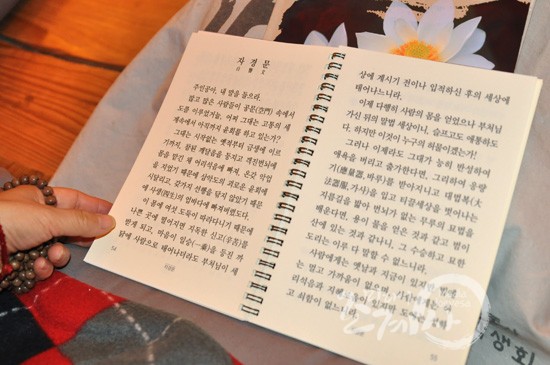 자 경 문
自 警 文
주인공아, 내 말을 들으라.
많고 많은 사람들이 공문(空門) 속에서
도를 이루었거늘, 어찌 그대는 고통의 세
계속에서 아직까지 윤회를 하고 있는가?
그대는 시작없는 옛부터 금생에 이르
기까지, 참된 깨달음을 등지고 객진번뇌에
물을 빠진 채 어리석음에 빠져, 온갖 악업
을 지었기 때문에 삼악도의 괴로운 윤회에
시달리고, 갖가지 선행을 닦지 않았기 때문
에 사생(四生)의 업바다에 빠져버렸도다.
이 몸에 여섯 도둑이 따라다니기 때문에
나쁜 곳에 떨어지면 지독한 신고(辛苦)를
받게 되고, 마음이 일승(一乘)을 등진 까
닭에 사람으로 태어나더라도 부처님이 세
54
상에 계시기 전이나 입적하신 후의 세상에
태어나느니라.
이제 다행히 사람의 몸을 얻었으나 부처님
가신 뒤의 말법 세상이니, 슬프고도 애통하도
다. 하지만 이것이 누구의 허물이겠는가!
그러나 이제라도 그대가 능히 반성하여
애욕을 버리고 출가한다면, 그리하여 응량
기(應量器, 바루)를 받아지니고 대법복(大
法服, 가사)을 입고 티끌세상을 벗어나는
지름길을 밟아 번뇌가 없는 무루의 묘법을
배운다면, 용이 물을 얻은 것과 같고 범이
산에 있는 것과 같나니, 그 수승하고 묘한
도리는 이루 다 말할 수 없느니라.
사람에게는 옛날과 지금이 있지만 법에
는 멀고 가까움이 없으며,
55
생회